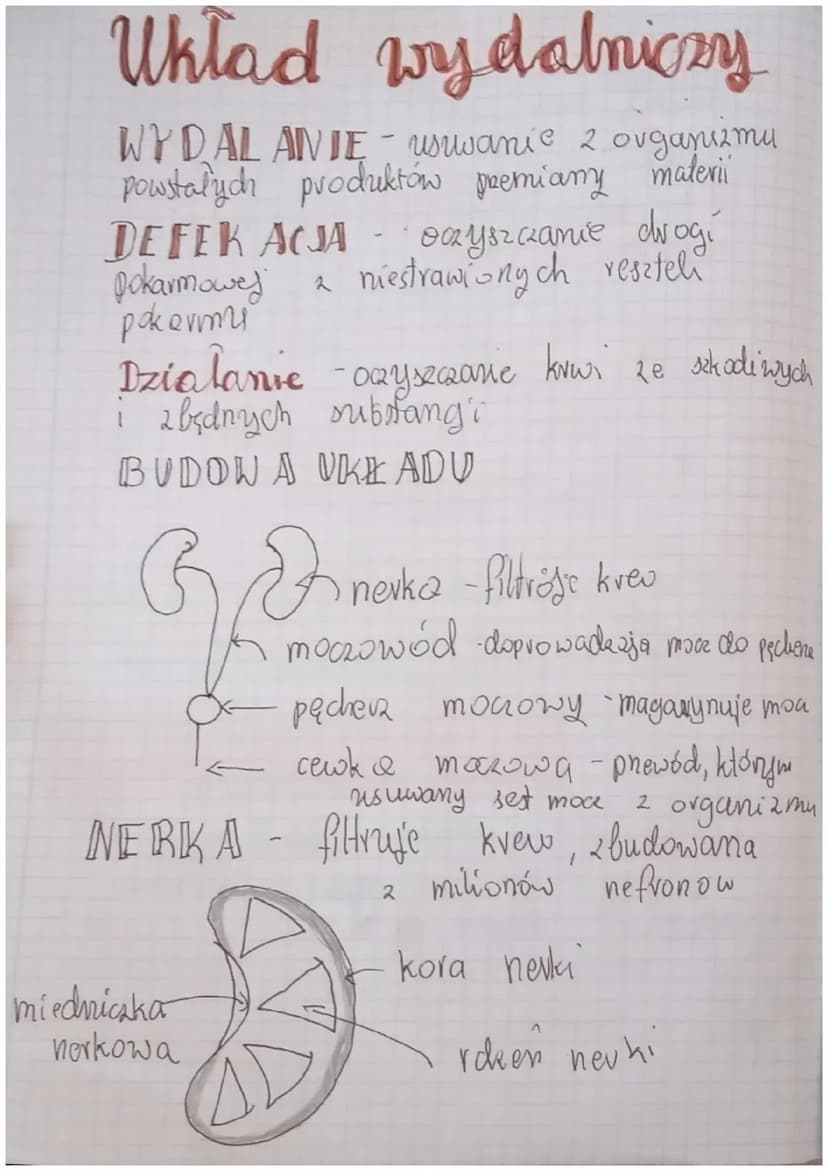 Układ wydalniczy
WYDALANIE - usuwanie z organizmu
powstałych produktów przemiany materii
DEFEKACJA - oczyszczanie drogi
pokarmowej z niestrawionych resztek
pokarmu
Działanie - oczyszczanie krwi ze szkodiwych
i zbędnych substancji
BUDOWA UKŁADU
nerka - filtróje krew
moczowód - doprowadzają mocz do pęcherza
pęcherz moczowy - magazynuje mocz
cewka moczowa - przewód, którym
usuwany jest mocz z organizmu
NERKA - filtruje krew, zbudowana
z milionów nefronow
kora nerki
miedniczka
nerkowa
rdzeń nerki